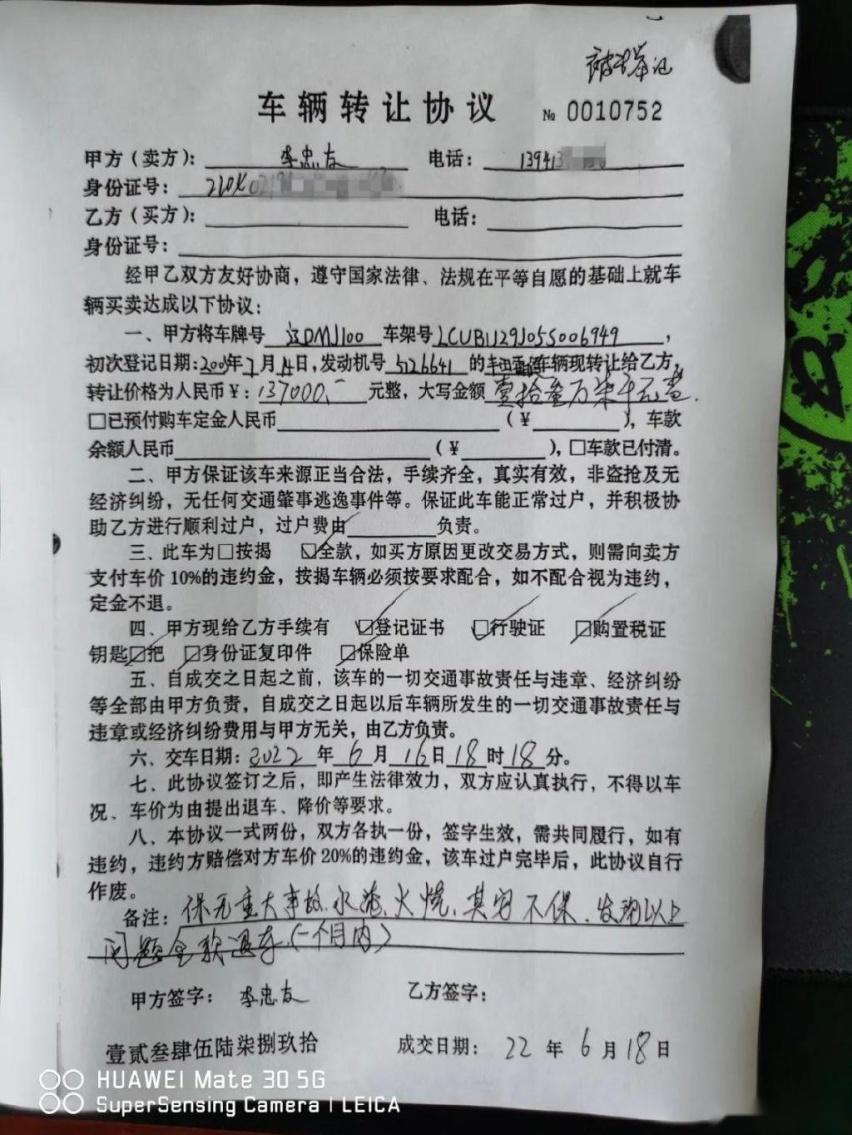 车辆转让协议 № 0010752
甲方（卖方）：李忠友 电话：13941
身份证号：
乙方（买方）： 电话：
身份证号：
经甲乙双方友好协商，遵守国家法律、法规在平等自愿的基础上就车
辆买卖达成以下协议：
一、甲方将车牌号 辽DMJ100 车架号LCUB1129J05S006949，
初次登记日期：2009年7月14日，发动机号5126641的车辆现转让给乙方，
转让价格为人民币￥：137000.- 元整，大写金额 壹拾叁万柒千元整.
□已预付购车定金人民币（￥ ），车款
余额人民币（￥ ），□车款已付清。
二、甲方保证该车来源正当合法，手续齐全，真实有效，非盗抢及无
经济纠纷，无任何交通肇事逃逸事件等。保证此车能正常过户，并积极协
助乙方进行顺利过户，过户费由 负责。
三、此车为□按揭 ☑全款，如买方原因更改交易方式，则需向卖方
支付车价10%的违约金，按揭车辆必须按要求配合，如不配合视为违约，
定金不退。
四、甲方现给乙方手续有 ☑登记证书 ☑行驶证 ☑购置税证
钥匙☑把 ☑身份证复印件 ☑保险单
五、自成交之日起之前，该车的一切交通事故责任与违章、经济纠纷
等全部由甲方负责，自成交之日起以后车辆所发生的一切交通事故责任与
违章或经济纠纷费用与甲方无关，由乙方负责。
六、交车日期：2022年6月16日18时18分。
七、此协议签订之后，即产生法律效力，双方应认真执行，不得以车
况、车价为由提出退车、降价等要求。
八、本协议一式两份，双方各执一份，签字生效，需共同履行，如有
违约，违约方赔偿对方车价20%的违约金，该车过户完毕后，此协议自行
作废。
备注：保无重大事故.水泡.火烧.其容不保.发现以上
问题全款退车(一个月内)
甲方签字：李忠友 乙方签字：
壹贰叁肆伍陆柒捌玖拾 成交日期：22年6月18日
HUAWEI Mate 30 5G
SuperSensing Camera | LEICA